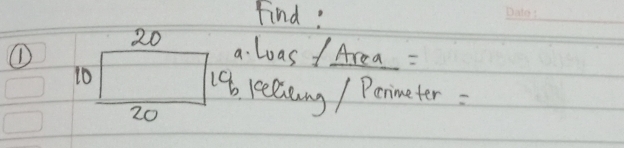 Find :
Date :
① 20 a. Luas / Area =
10 10 b. Keliling / Perimeter =
20